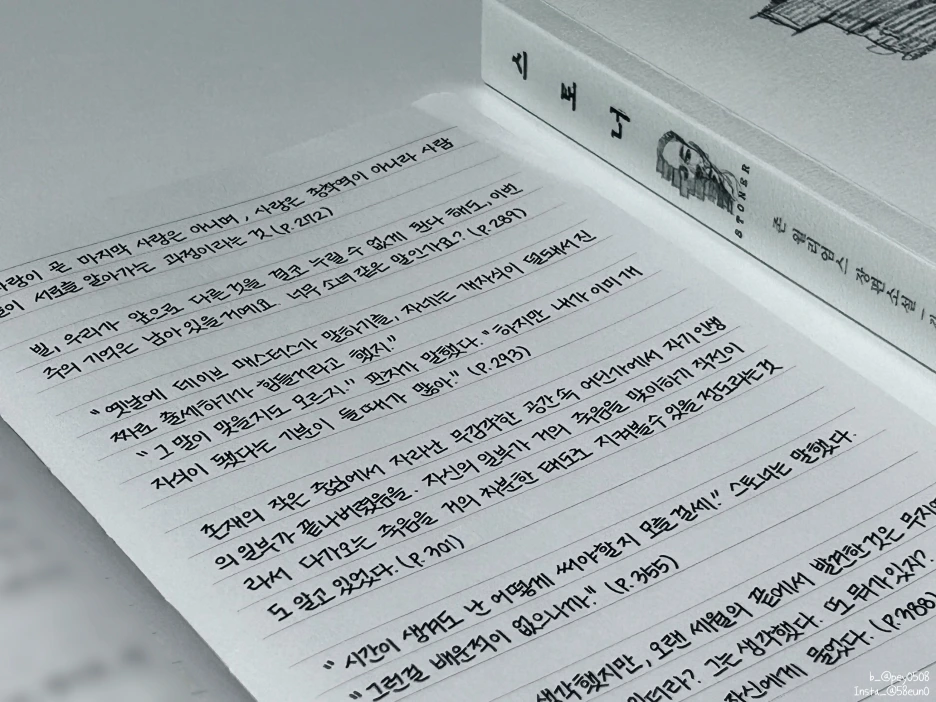 사랑이 곧 마지막 사랑은 아니며, 사랑은 종착역이 아니라 사람
들이 서로를 알아가는 과정이라는 것 (p.272)
빌, 우리가 앞으로 다른 것을 결코 누릴 수 없게 된다 해도, 이번
주의 기억은 남아 있을 거예요. 너무 소녀 같은 말인가요? (p.289)
"옛날에 데이브 매스터스가 말하기를, 자네는 개자식이 덜돼서 진
짜로 출세하기가 힘들거라고 했지"
"그 말이 맞을지도 모르지." 핀치가 말했다. "하지만 내가 이미 개
자식이 됐다는 기분이 들 때가 많아." (p.293)
존재의 작은 중심에서 자라난 무감각한 공간 속 어딘가에서 자기 인생
의 일부가 끝나버렸음을. 자신의 일부가 거의 죽음을 맞이하기 직전이
라서 다가오는 죽음을 거의 차분한 태도로 지켜볼 수 있을 정도라는 것
도 알고 있었다. (p.301)
"시간이 생겨도 난 어떻게 써야할지 모를 걸세." 스토너는 말했다.
"그런걸 배운적이 없으니까." (p.355)
생각했지만, 오랜 세월의 끝에서 발견한 것은 무지였
있더라? 그는 생각했다. 또 뭐가 있지?
자신에게 물었다. (p.388)
스토너
STONER
존 윌리엄스 장편소설
b_@pey0508
Insta_@58eun0